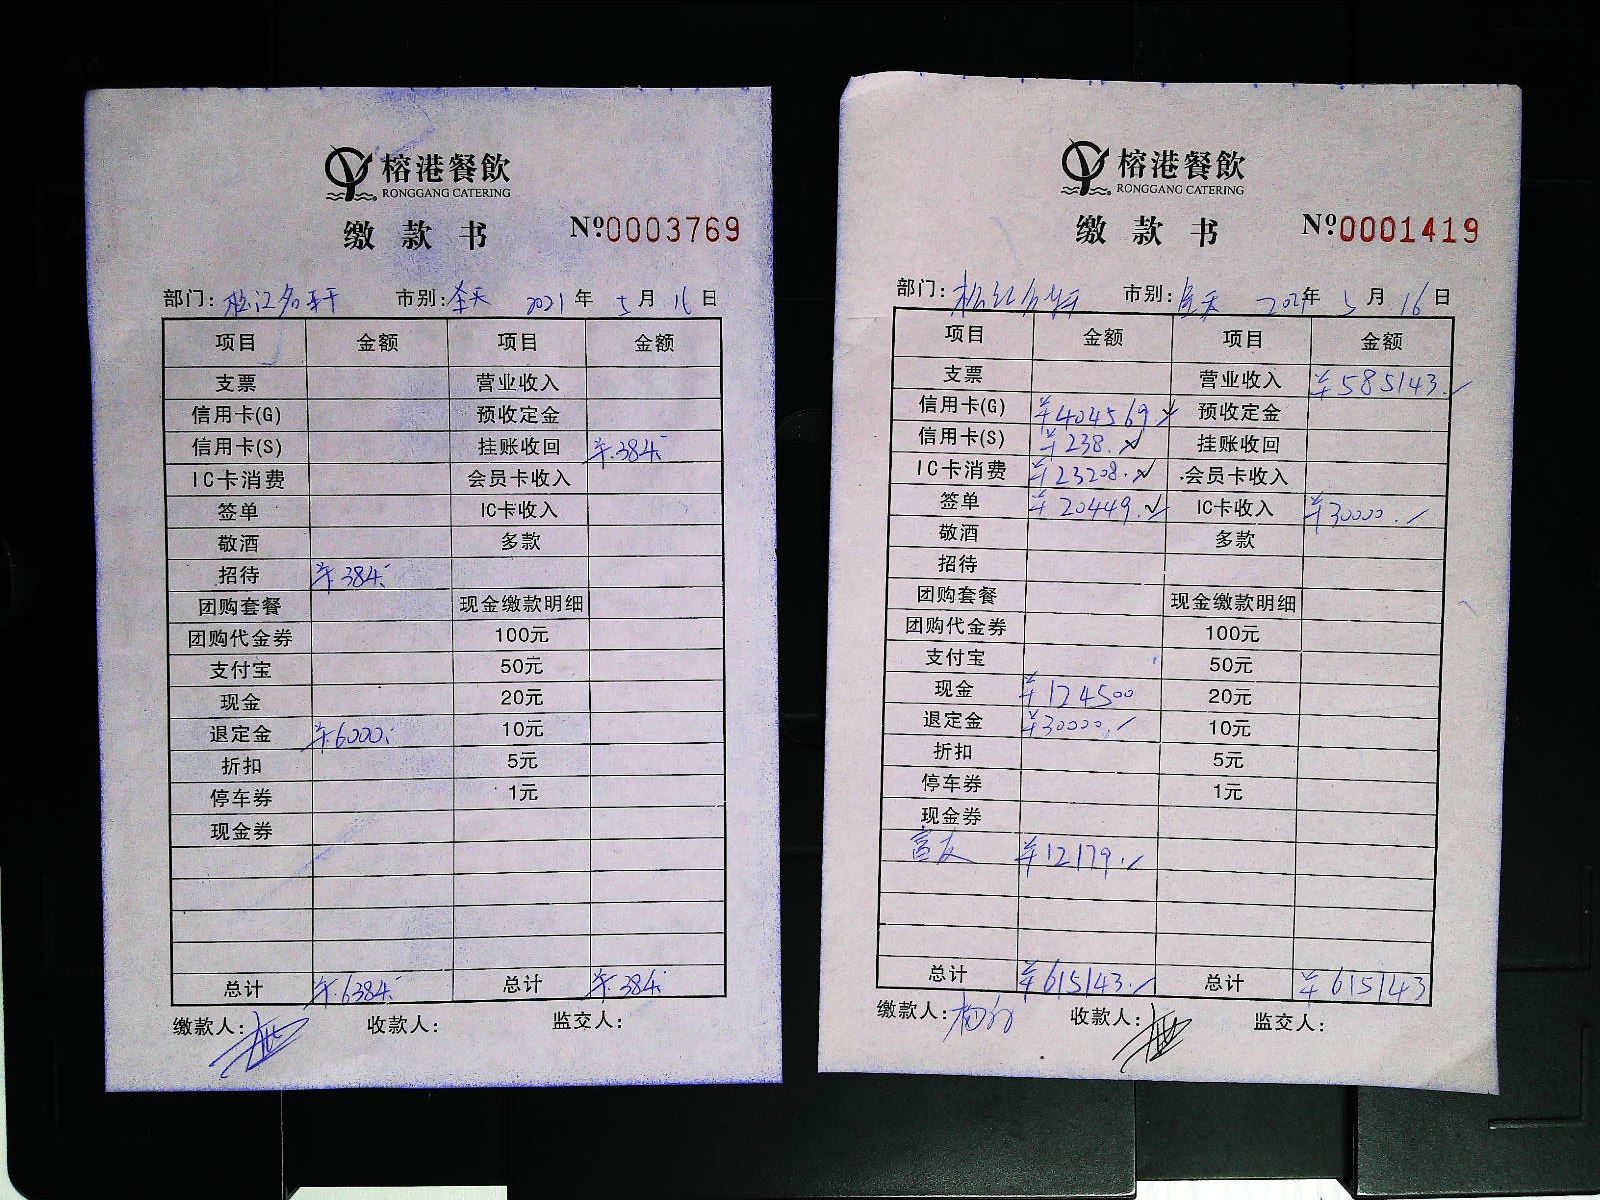 榕港餐飲
RONGGANG CATERING
缴款书 Nº0003769
部门:松江名轩 市别:全天 2021年5月16日
项目 金额 项目 金额
支票 营业收入
信用卡(G) 预收定金
信用卡(S) 挂账收回 ¥384.
IC卡消费 会员卡收入
签单 IC卡收入
敬酒 多款
招待 ¥384.
团购套餐 现金缴款明细
团购代金券 100元
支付宝 50元
现金 20元
退定金 ¥6000. 10元
折扣 5元
停车券 1元
现金券
总计 ¥6384. 总计 ¥384.
缴款人: 收款人: 监交人:
榕港餐飲
RONGGANG CATERING
缴款书 Nº0001419
部门:松江名轩 市别:全天 2021年5月16日
项目 金额 项目 金额
支票 营业收入 ¥585143.
信用卡(G) ¥404569 预收定金
信用卡(S) ¥238. 挂账收回
IC卡消费 ¥23208. 会员卡收入
签单 ¥20449. IC卡收入 ¥30000.
敬酒 多款
招待
团购套餐 现金缴款明细
团购代金券 100元
支付宝 50元
现金 ¥124500 20元
退定金 ¥30000. 10元
折扣 5元
停车券 1元
现金券
富友 ¥12179.
总计 ¥615143. 总计 ¥615143
缴款人: 收款人: 监交人: